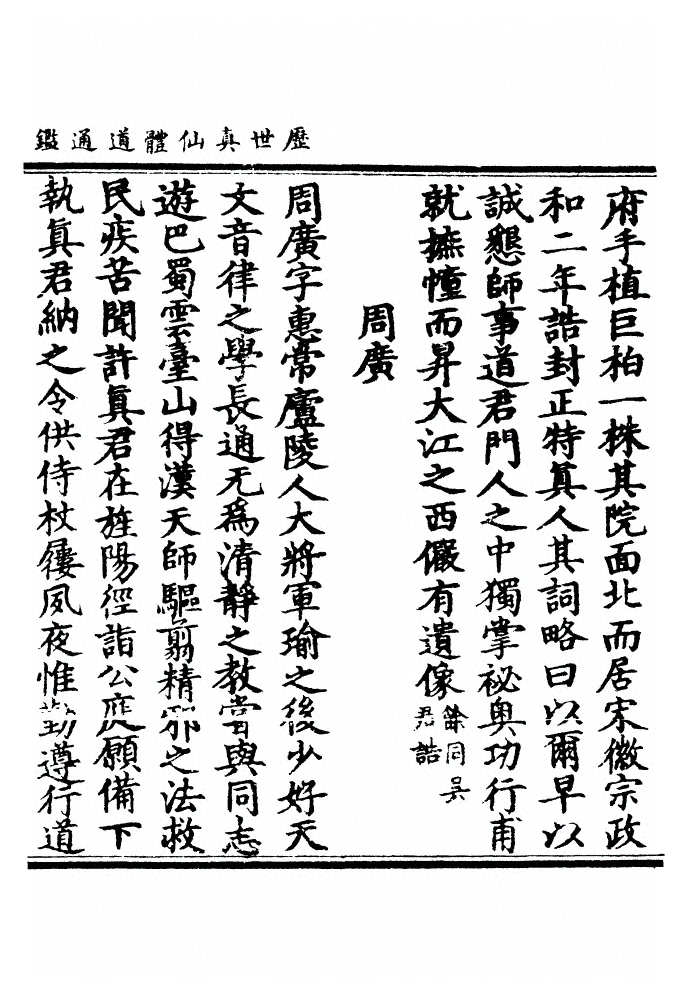 歷世真仙體道通鑑
府手植巨柏一株其院面北而居宋徽宗政
和二年誥封正特真人其詞略曰以爾早以
誠懇師事道君門人之中獨掌祕奥功行甫
就摭幢而昇大江之西儼有遺像餘同吴君誥
周廣
周廣字惠常廬陵人大將軍瑜之後少好天
文音律之學長通无為清靜之教嘗與同志
遊巴蜀雲臺山得漢天師驅翦精邪之法救
民疾苦聞許真君在旌陽徑詣公庭願備下
執真君納之令供侍杖屨夙夜惟勤遵行道